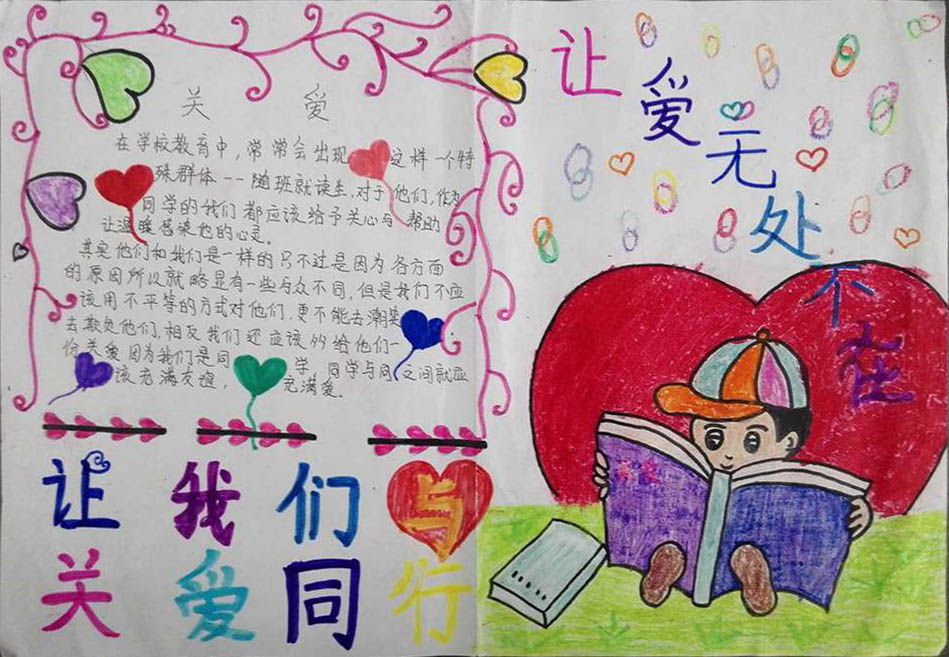 关 爱
在学校教育中，常常会出现这样一个特
殊群体--随班就读生，对于他们，作为
同学的我们都应该给予关心与帮助
让温暖感染他的心灵。
其实他们和我们是一样的只不过是因为各方面
的原因所以就略显有一些与众不同，但是我们不应
该用不平等的方式对他们，更不能去潮笑
去欺负他们，相反我们还应该的给他们一
份关爱因为我们是同学，同学与同之间就应
该充满友谊，充满爱。
让我们与
关爱同行
让爱无处不在